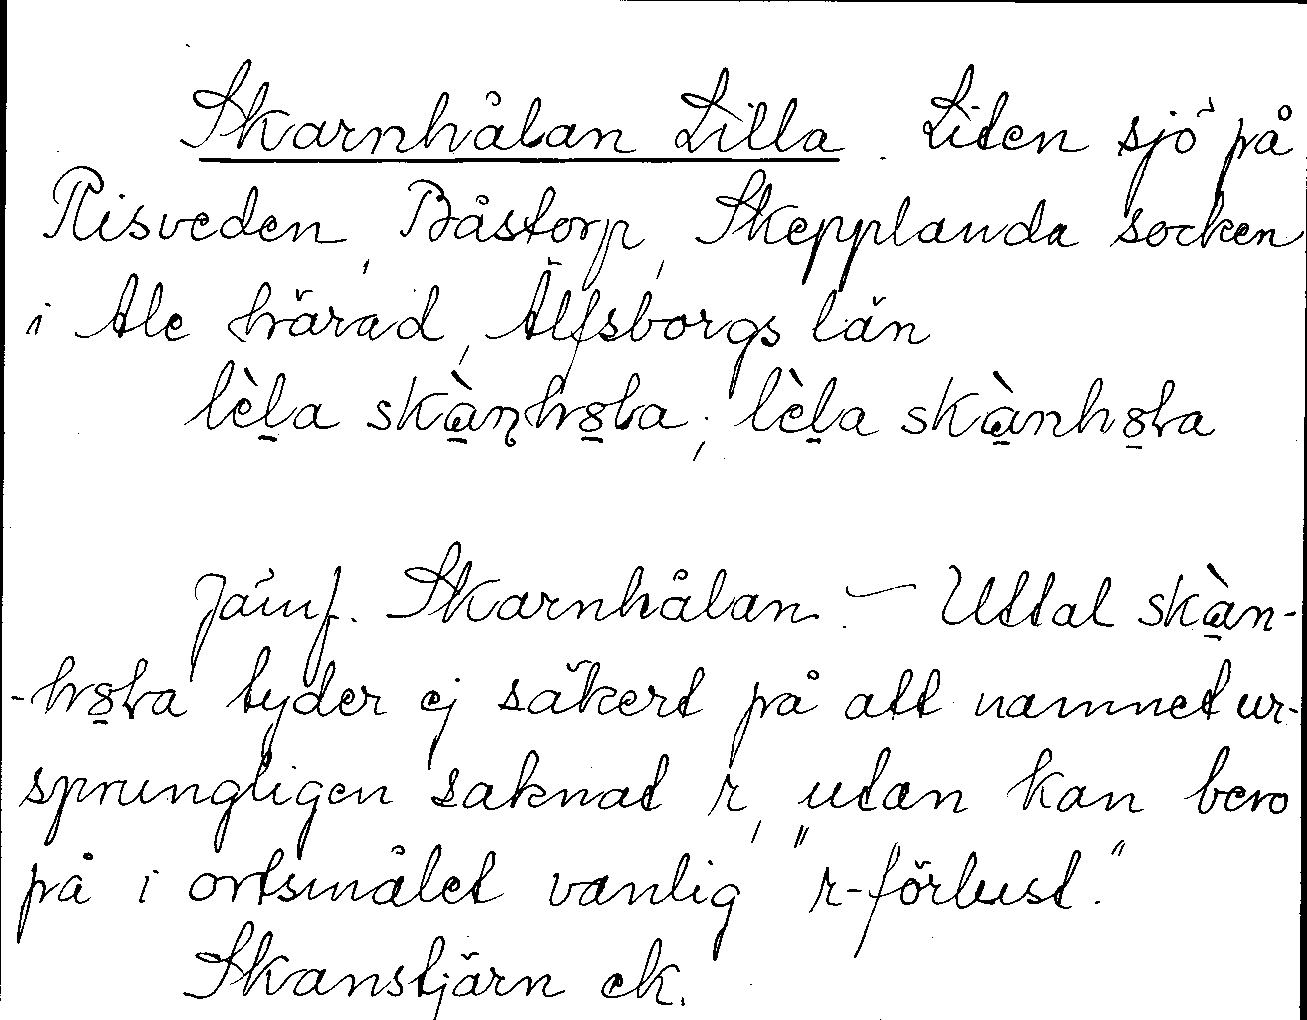 Skarnhålan Lilla. Liten sjö på
Risveden, Båstorp, Skepplanda socken
i Ale härad, Älfsborgs län
lèl̠a skà̠ṇho̠la; lèl̠a skà̠nho̠la
Jämf. Skarnhålan. – Uttal skà̠n-
-ho̠la tyder ej säkert på att namnet ur-
sprungligen saknat r, utan kan bero
på i ortsmålet vanlig "r-förlust."
Skanstjärn ek.